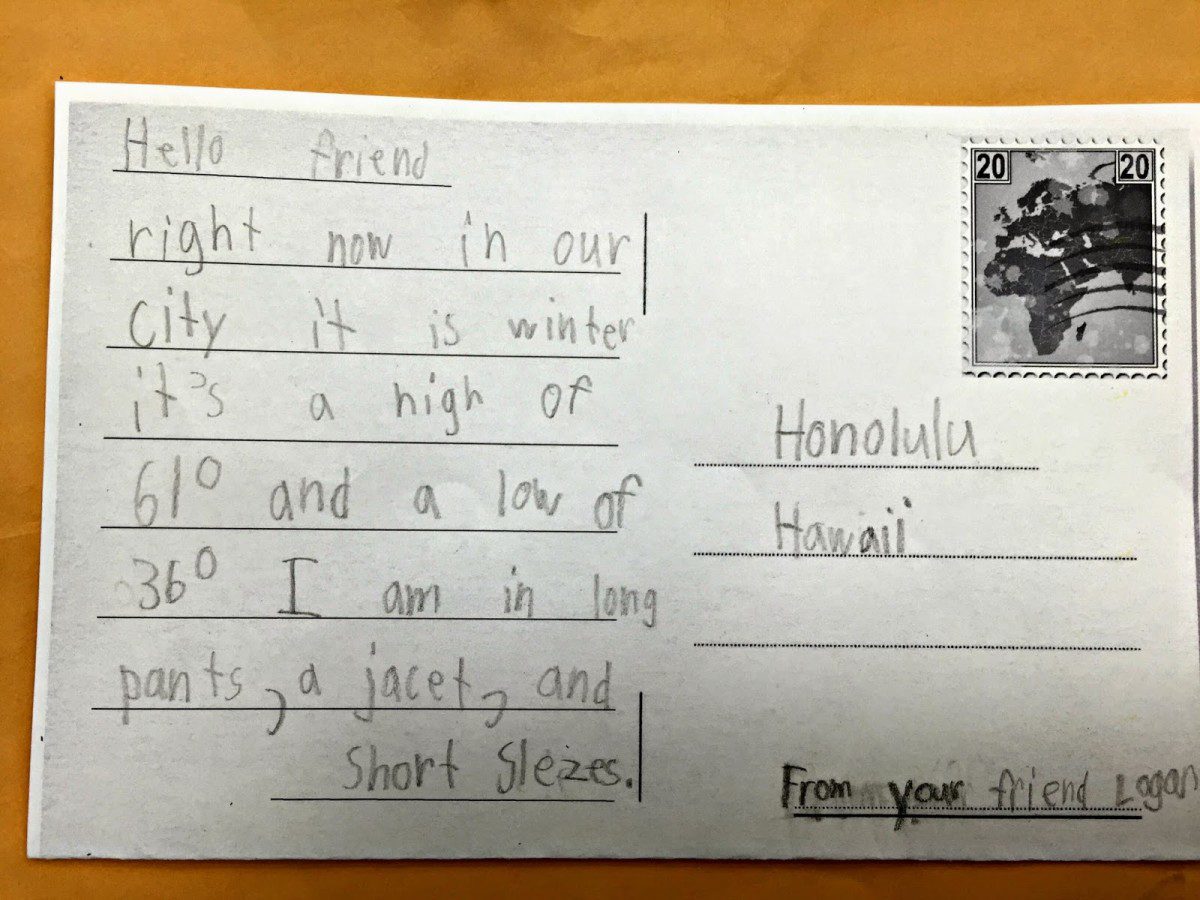 Hello friend
right now in our
city it is winter
it's a high of
61° and a low of
36° I am in long
pants, a jacet, and
short slezes.
20 20
Honolulu
Hawaii
From your friend Logan